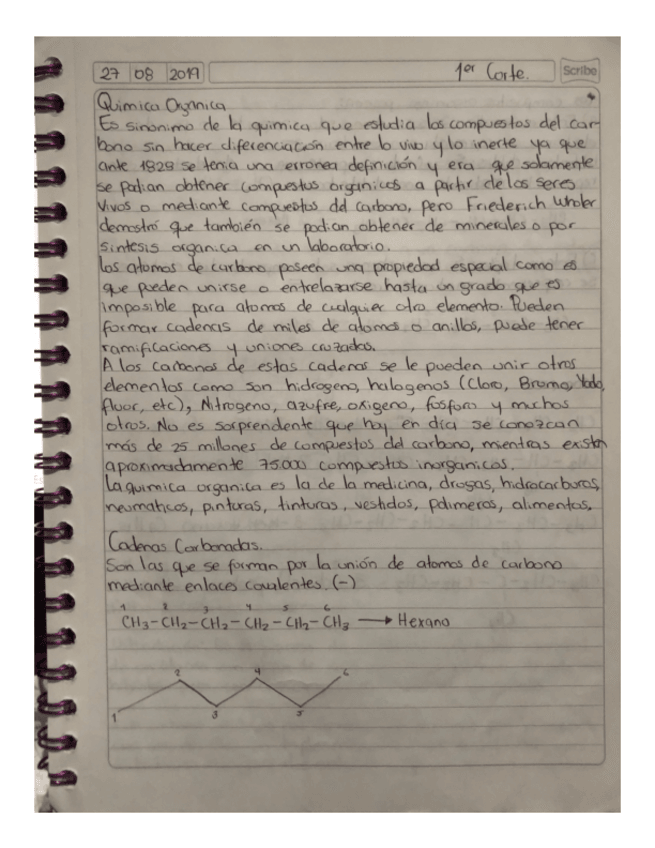 27 08 2019 1er Corte. Scribe
Quimica Organica
Es sinonimo de la quimica que estudia los compuestos del car-
bono sin hacer diferenciación entre lo vivo y lo inerte ya que
ante 1828 se tenia una erronea definición y era que solamente
se podian obtener compuestos organicos a partir de los seres
Vivos o mediante compuestos del carbono, pero Friederich Whöler
demostró que también se podian obtener de minerales o por
sintesis organica en un laboratorio.
Los atomos de carbono poseen una propiedad especial como es
que pueden unirse o entrelazarse hasta un grado que es
imposible para atomos de cualquier otro elemento. Pueden
formar cadenas de miles de atomos o anillos, puede tener
ramificaciones y uniones cruzadas.
A los carbonos de estas cadenas se le pueden unir otros
elementos como son hidrogeno, halogenos (Cloro, Bromo, Yodo,
fluor, etc), Nitrogeno, azufre, oxigeno, fosforo y muchos
otros. No es sorprendente que hoy en dia se conozcan
más de 25 millones de compuestos del carbono, mientras existen
aproximadamente 75.000 compuestos inorganicos.
La quimica organica es la de la medicina, drogas, hidrocarburos,
neumaticos, pinturas, tinturas, vestidos, polimeros, alimentos.
Cadenas Carbonadas.
Son las que se forman por la unión de atomos de carbono
mediante enlaces covalentes. (-)
1 2 3 4 5 6
CH3-CH2-CH2-CH2-CH2-CH3 → Hexano
2 4 6
1 3 5